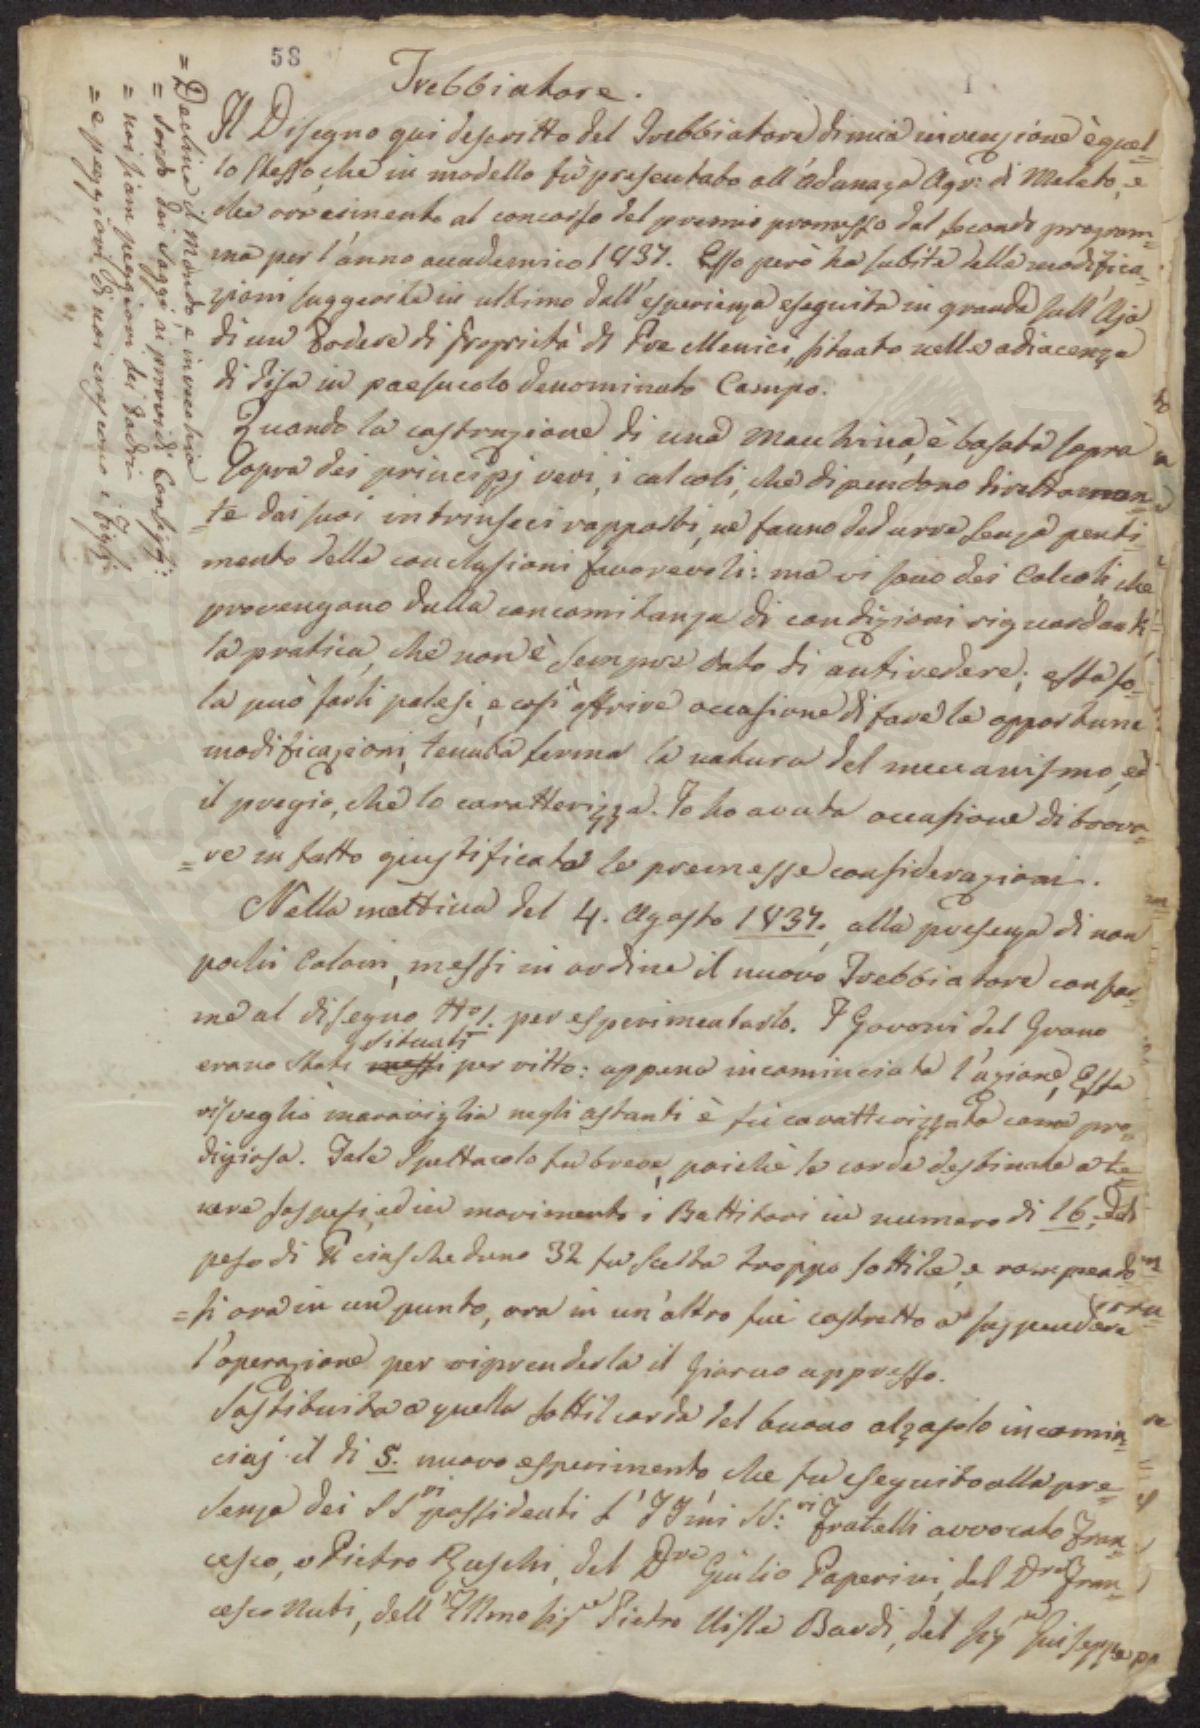 58
Trebbiatore.
Il Disegno qui descritto del Trebbiatore di mia invenzione è quel=
lo stesso, che in modello fù presentato all'Adunanza Agr: di Meleto, e
che ovvesimento al concorso del premio promesso dal secondo program=
ma per l'ánno accademico 1837. Esso però ha subite delle modifica=
zioni suggerite in ultimo dall'esperienza eseguita in grande sull'Aja
di un Podere di proprietà di Menici, situato nelle adiacenze
di Pisa in paesucolo denominato Campo.
Quando la costruzione di una Macchina, è basata sopra
sopra dei principj veri, i calcoli, che dipendono direttamen=
=te dai suoi intrinseci rapporti, ne fanno dedurre senza penti=
mento delle conclusioni favorevoli: ma vi sono dei Calcoli, che
provengono dalla concomitanza di condizioni riguardanti
la pratica, che non è sempre dato di antivedere; essa so=
la può farli palesi, e così offrire occasione di fare le opportune
modificazioni, tenuta ferma la natura del meccanismo, ed
il pregio, che lo caratterizza. Io ho avuta occasione di trova=
=re in fatto giustificate le premesse considerazioni.
Nella mattina del 4. Agosto 1837., alla presenza di non
pochi Coloni, messi in ordine il nuovo Trebbiatore confor=
me al disegno per esperimentarlo. I Govoni del Grano
situati
erano stati messi per ritto: appena incominciata l'azione, Essa
risveglio maraviglia negli astanti è fù caratterizzata come pro=
digiosa. Tale Spettacolo fu breve, poichè le corde destinate a te=
nere sospesi, ed in movimento i Battitori in numero di 16, del
peso di ciascheduno 32 fu scelta troppo sottile, e rompendo=
=si ora in un punto, ora in un'altro fui costretto a' sospendere
l'operazione per riprenderla il Giorno appresso.
Sostituita a quella sottil corda del buono alzajolo incomin=
ciaj il di 5. nuovo esperimento, che fu eseguito alla pre=
senza dei SS.ri possidenti Illmi SS:ri Fratelli avvocato Fran=
cesco, e Pietro Ruschi, del Dre Giulio Paperini, del Dre Fran=
cesco Nuti, dell'Illmo Sigre Pietro Bardi, del Sigre Giuseppe
=Declina il Mondo, e invecchia
= Sordo dei Saggi ai provvidi Consigj:
= noi siam peggiori dei Padri
= e peggiori di noi crescono i Figli